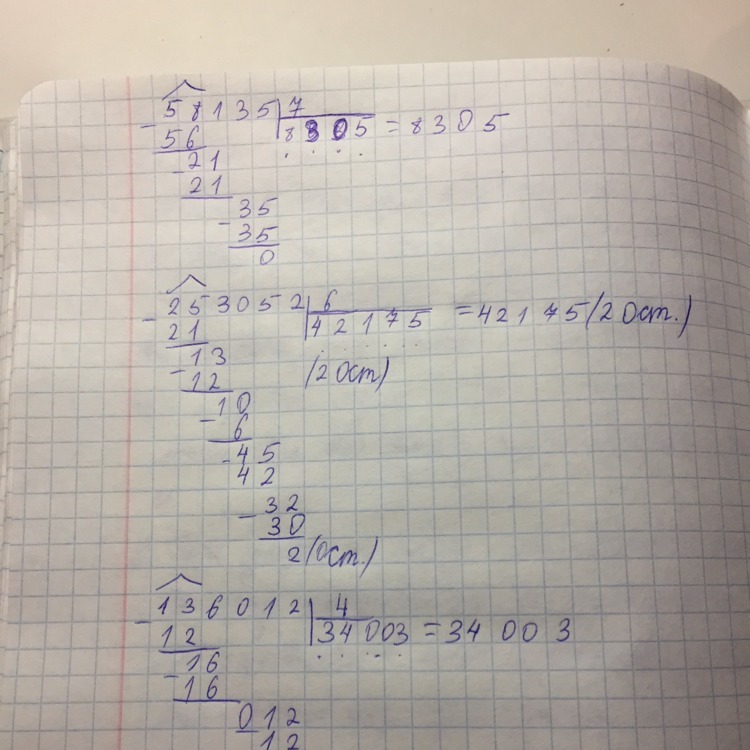 58135 7
56 8305 = 8305
21
21
35
35
0
253052 6
21 42175 = 42175 (2 Ост.)
13
12 (2 Ост)
10
6
45
42
32
30
2 (Ост.)
136012 4
12 34003 = 34 003
16
16
012
12